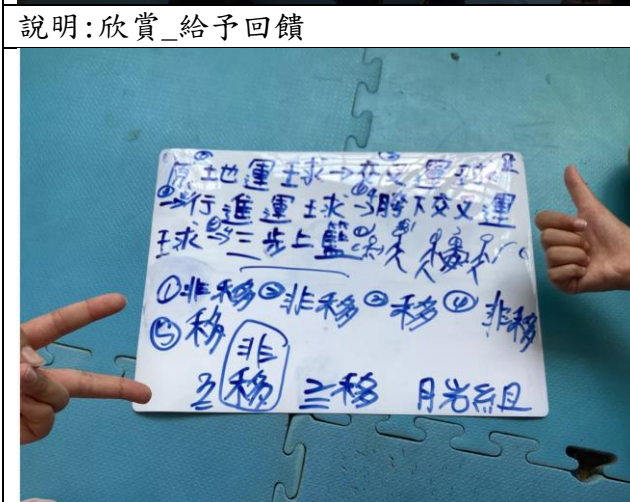 說明:欣賞_給予回饋
原地運球→交叉運球
→行進運球→胯下交叉運
球→三步上籃
①非移②非移③移④非移
⑤移
非
移 移 組